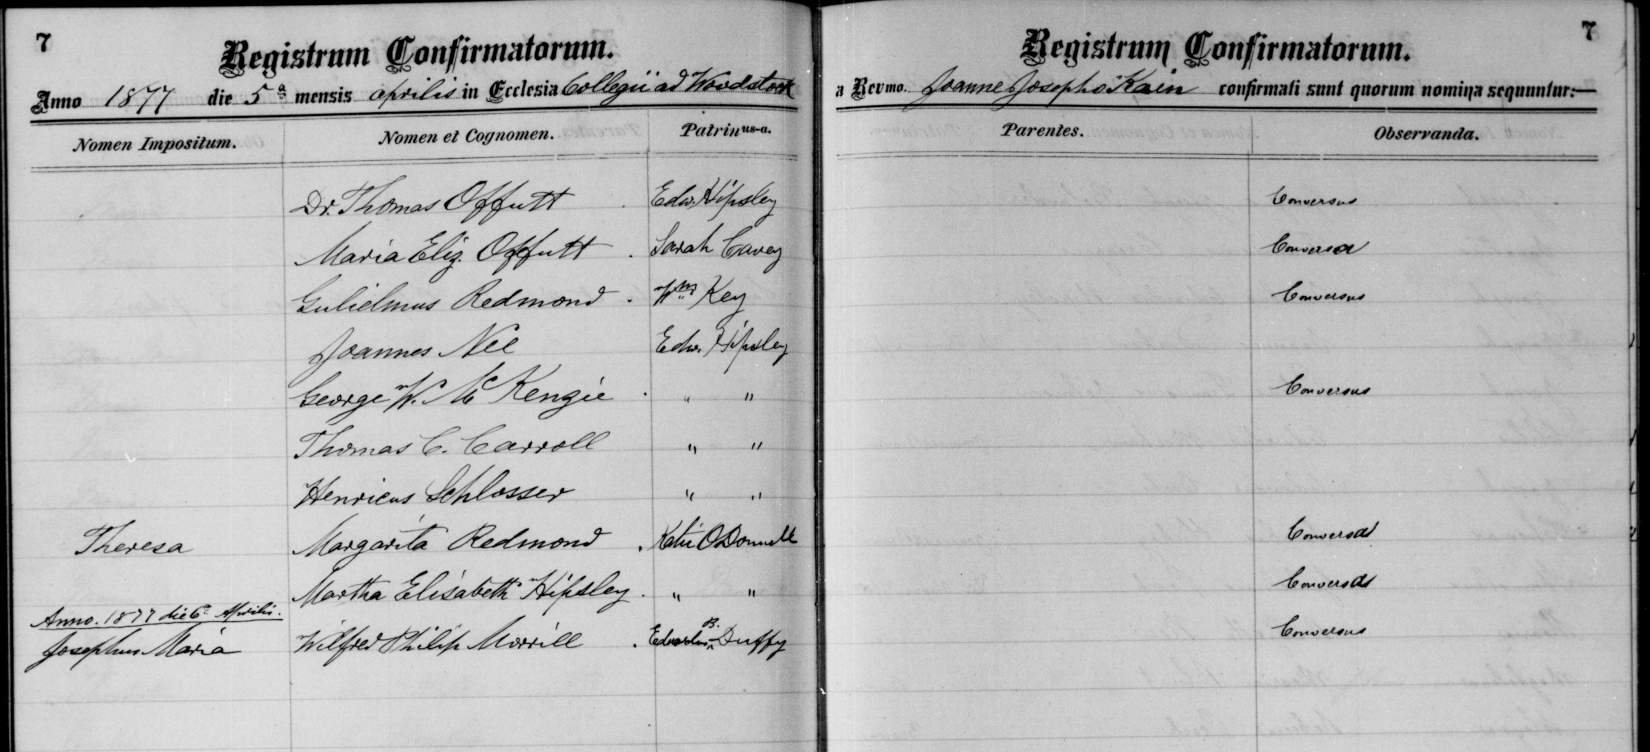 7
Registrum Confirmatorum.
Anno 1877 die 5ª mensis aprilis in Ecclesia Collegii ad Woodstock
Nomen Impositum. Nomen et Cognomen. Patrinus-a.
Dr. Thomas Offutt Edw. Hipsley
Maria Eliz. Offutt . Sarah Cavey
Gulielmus Redmond . Wm Key
Joannes Nee Edw. Hipsley
George W. Mc Kenzie . " "
Thomas C. Carroll " "
Henricus Schlosser " "
Theresa Margarita Redmond . Katie O'Donnell
Martha Elisabeth Hipsley . " "
Anno. 1877 die 6ª Aprilis.
Josephus Maria Wilfred Philip Morrill . Eduardus B. Duffy
7
Registrum Confirmatorum.
a Revmo. Joanne Josepho Kain confirmati sunt quorum nomina sequuntur:—
Parentes. Observanda.
Conversus
Conversa
Conversus
Conversus
Conversa
Conversa
Conversus